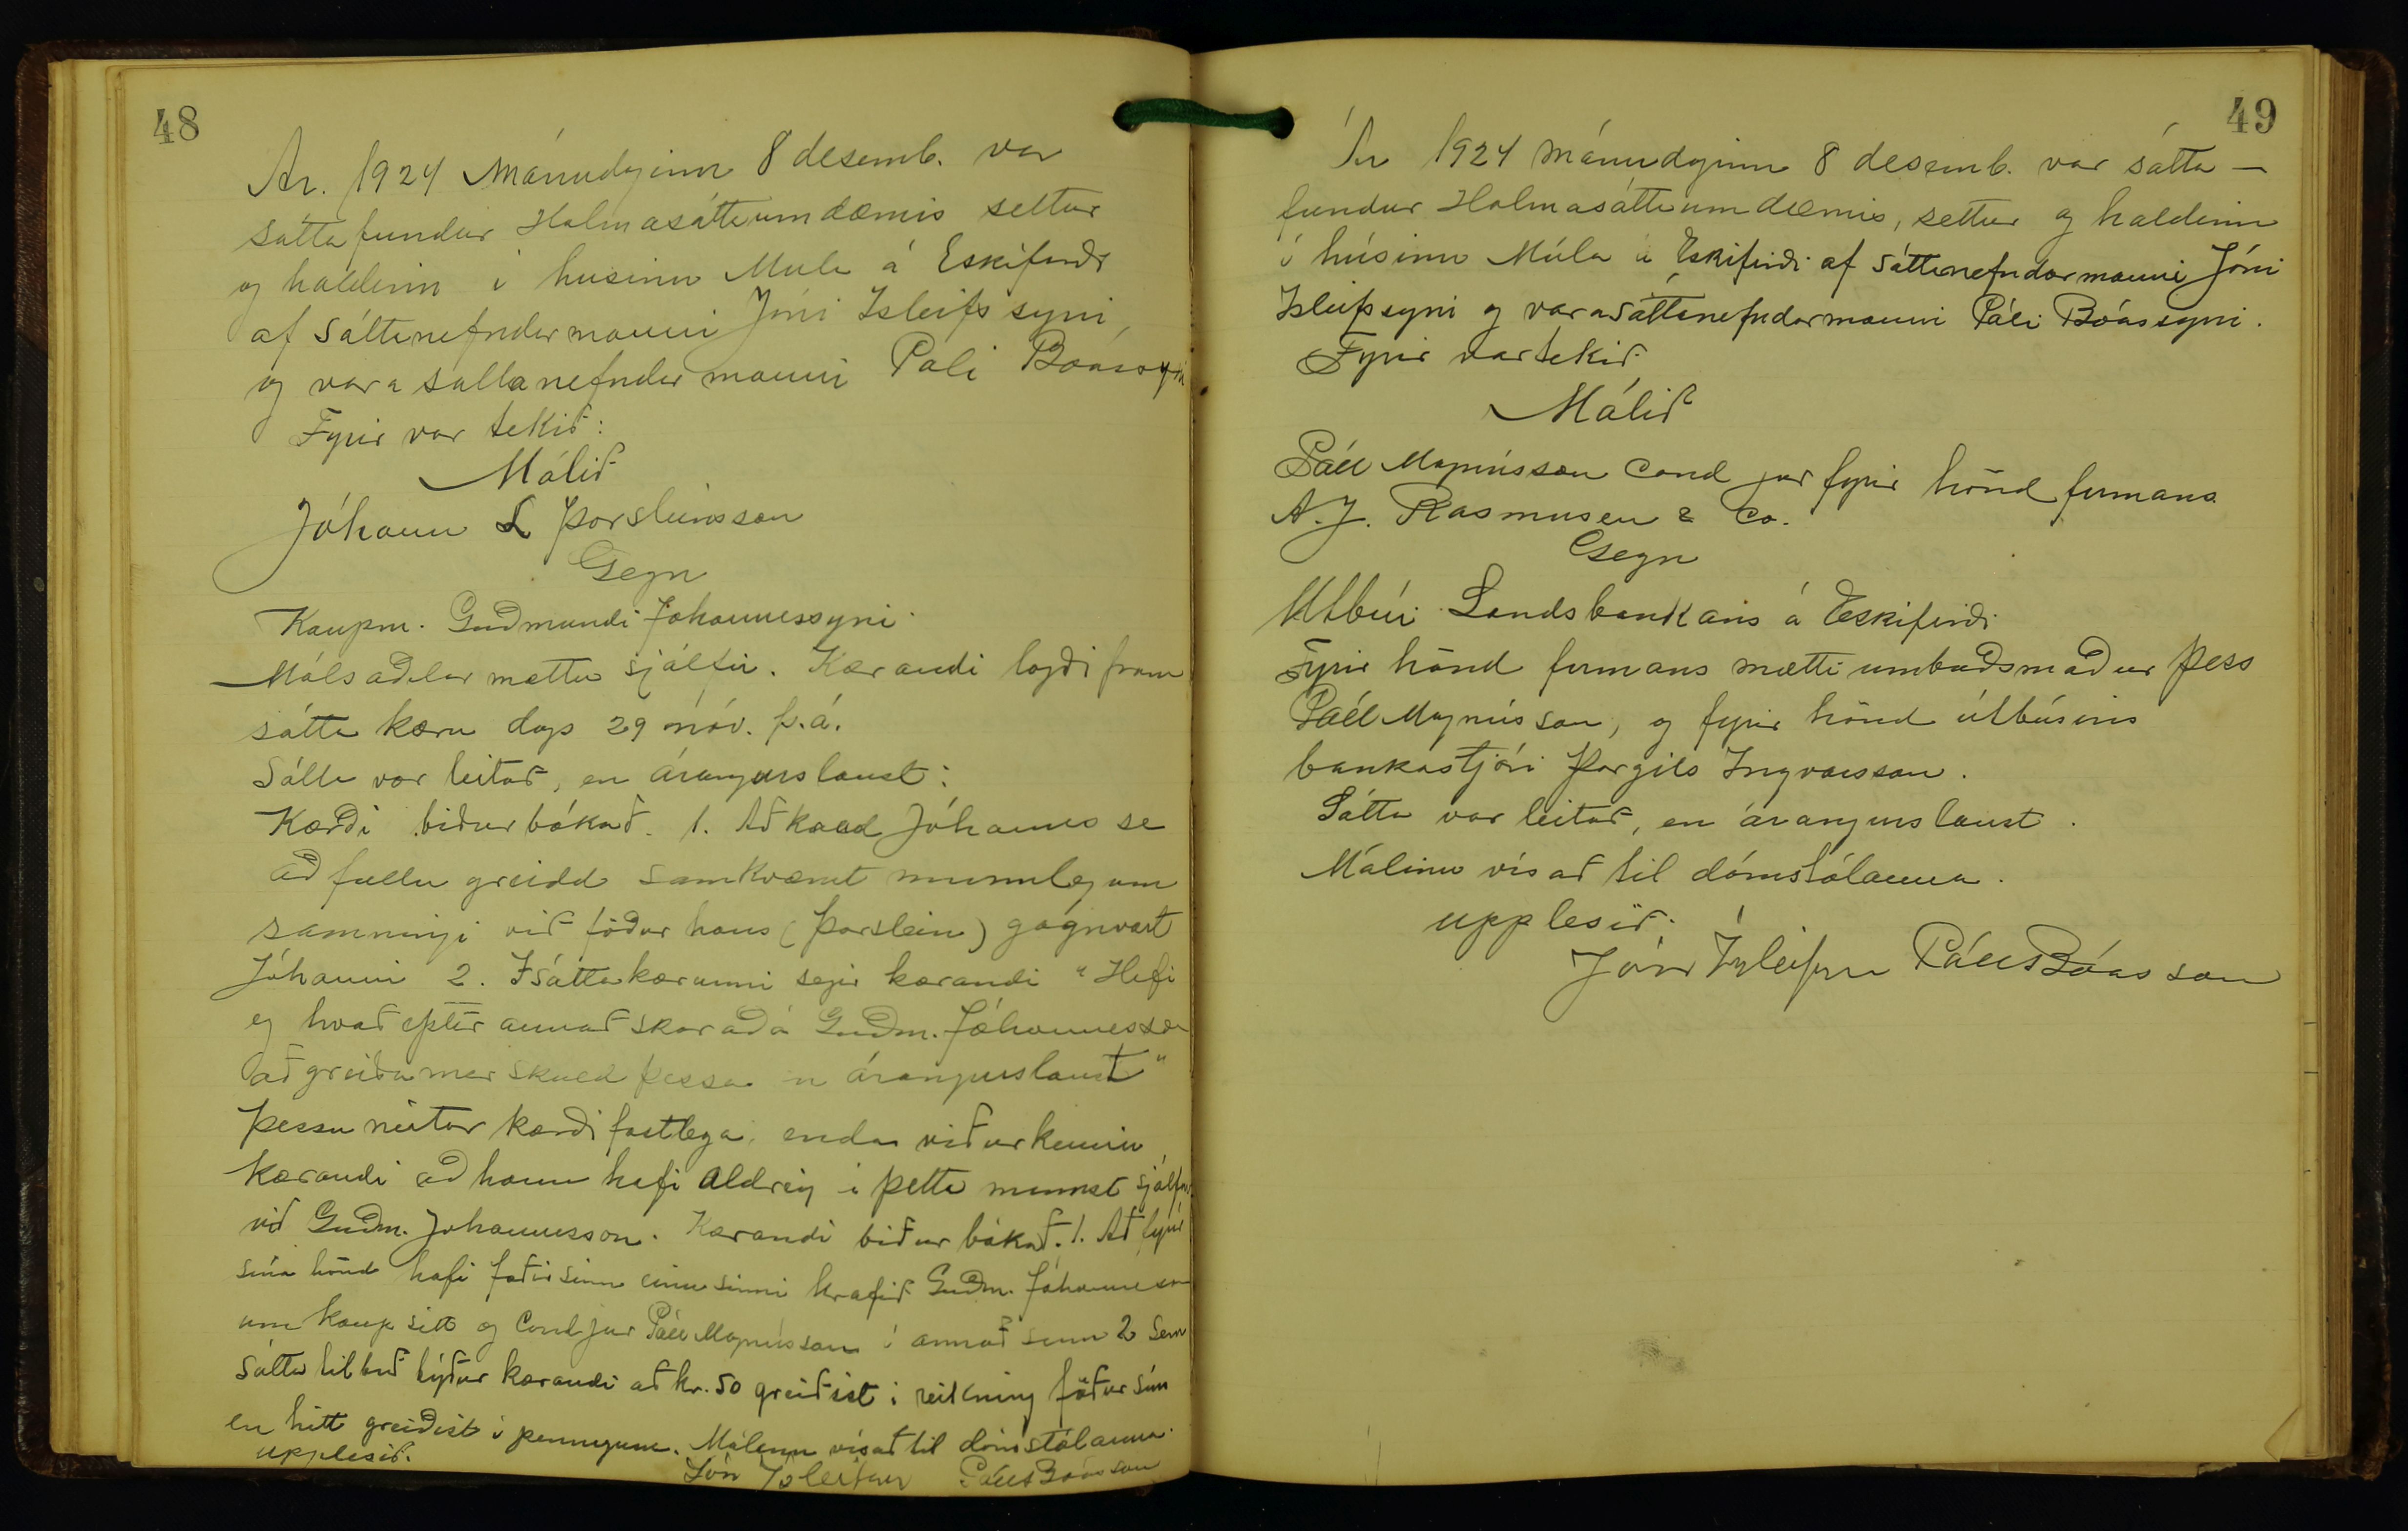 48
Ár. 1924 Mánudaginn 8 desemb. var
sáttafundur Hólmasáttaumdæmis settur
og haldinn í húsinu Múla á Eskifirði
af Sáttanefndarmanni Jóni Ísleifssyni,
og vara sáttanefndarmanni Páli Bóassyni
Fyrir var tekið:
Málið
Jóhann L Þorsteinsson
Gegn
Kaupm. Guðmundi Jóhannessyni
Málsaðilar mættu sjálfir. Kærandi lagði fram
sátta kæru dags 29 nóv. þ.á.
Sátta var leitað, en árangurslaust:
Kærði biður bókað. 1. Að kaup Jóhanns sé
að fullu greidd samkvæmt munnlegum
samningi við föður hans (Þorstein) gagnvart
Jóhanni 2. Í sáttakærunni segir kærandi "Hefi
eg hvað eftir annað skorað á Guðm. Jóhannesson
að greiða mér skuld þessa en árangurslaust"
Þessu neitar kærði fastlega, enda viðurkennir
kærandi að hann hafi aldrei í þetta minnst sjálfur
við Guðm. Jóhannesson. Kærandi biður bókað. 1. Að fyrir
sína hönd hafi faðir sinn einu sinni krafið Guðm. Jóhannesson
um kaup sitt og Cand jur Páll Magnússon í annað sinn 2 Sem
sátta tilboð býður kærandi að kr. 50 greiðist í reikning föður sín
en hitt greiðist í peningum. Málinu vísað til dómstólanna.
upplesið.
Jón Ísleifsson Páll Bóasson
49
Ár 1924 mánudaginn 8 desemb. var sátta-
fundur Hólmasáttaumdæmis, settur og haldinn
í húsinu Múla á Eskifirði af Sáttanefndarmanni Jóni
Ísleifssyni og varasáttanefndarmanni Páli Bóassyni.
Fyrir var tekið
Málið
Páll Magnússon Cand jur fyrir hönd firmans
A. J. Rasmusen & Co.
Gegn
Útbúi Landsbankans á Eskifirði
Fyrir hönd firmans mætti umboðsmaður þess
Páll Magnússon, og fyrir hönd útbúsins
bankastjóri Þorgils Ingvarsson.
Sátta var leitað, en árangurslaust.
Málinu vísað til dómstólanna.
upplesið.
Jón Ísleifsson Páll Bóasson